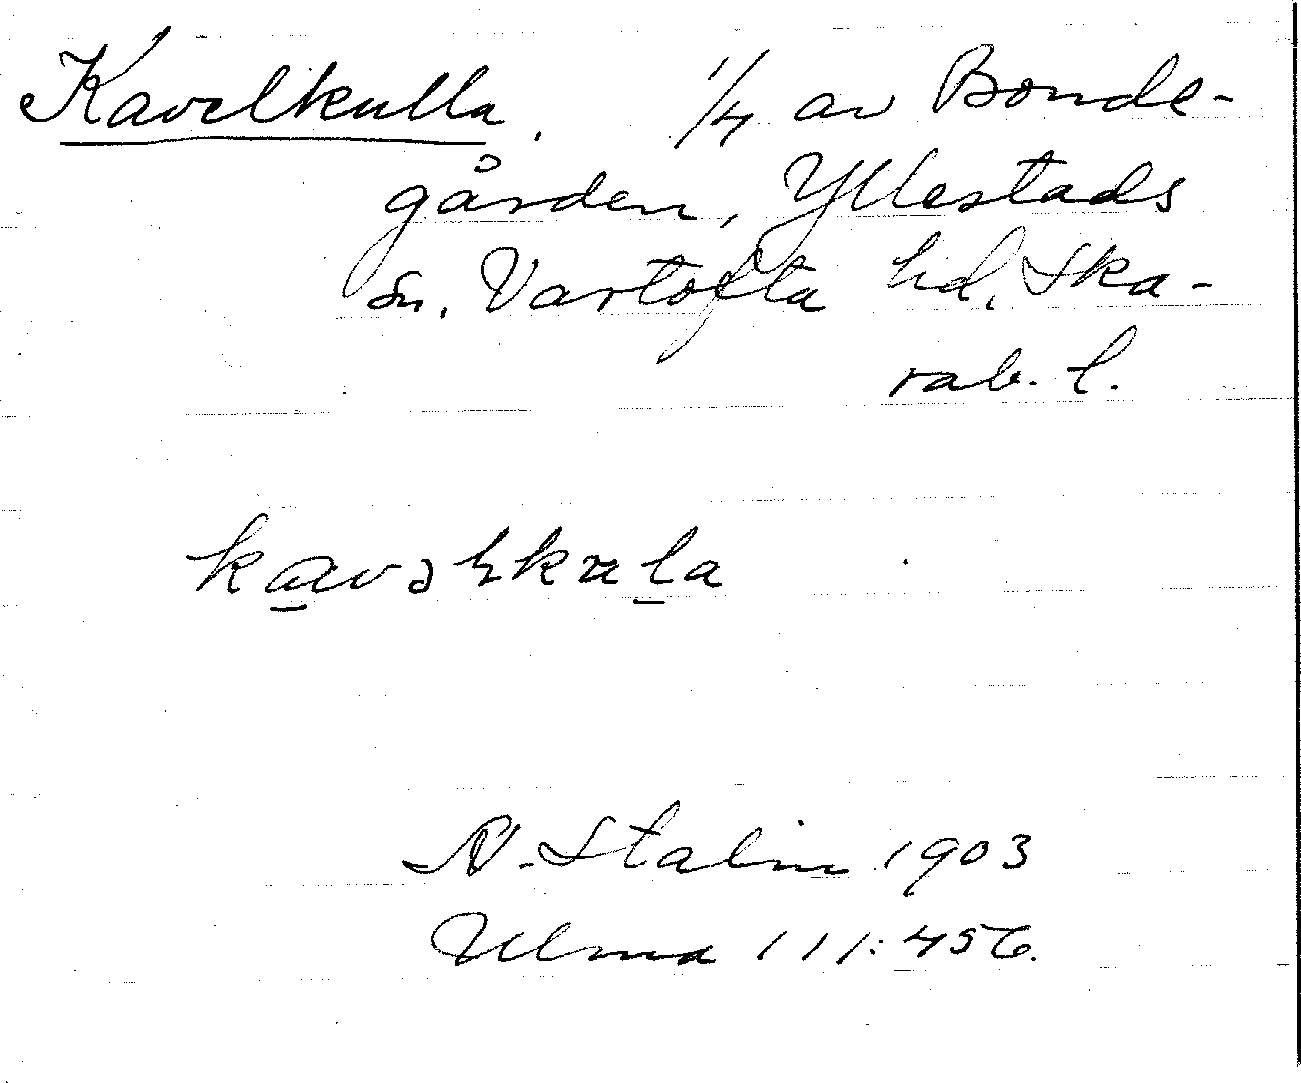 Kavelkulla. 1/4 av Bonde-
gården, Yllestads
sn. Vartofta hd, Ska-
rab. l.
kavəlkula
N. Stalin 1903
Ulma 111:456.